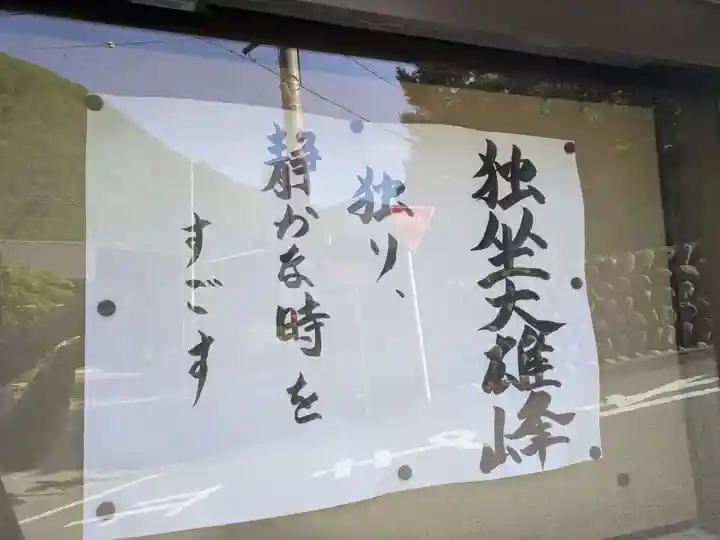 独坐大雄峰
独り、
静かな時を
すごす